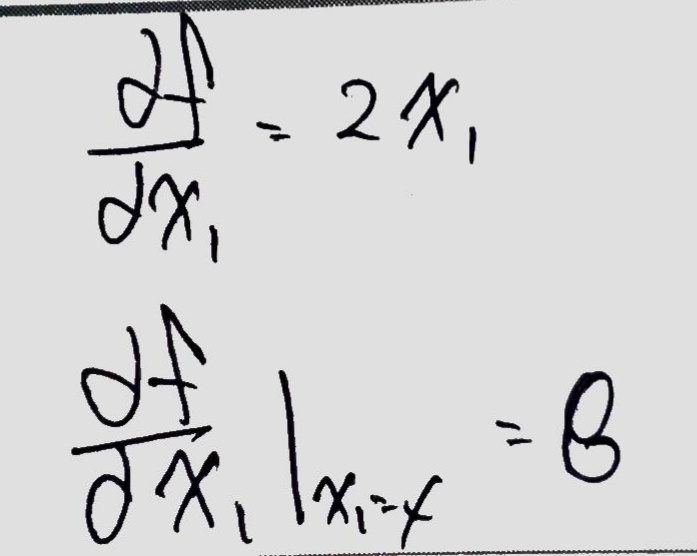 ∂f/∂x₁ = 2x₁
∂f/∂x₁ |ₓ₁₌₄ = 8